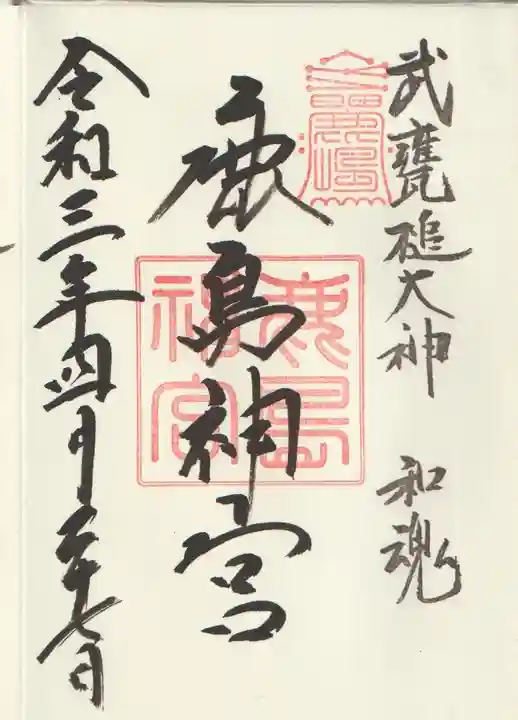 武甕槌大神 和魂
鹿島神宮
鹿島神宮
令和三年四月二十七日